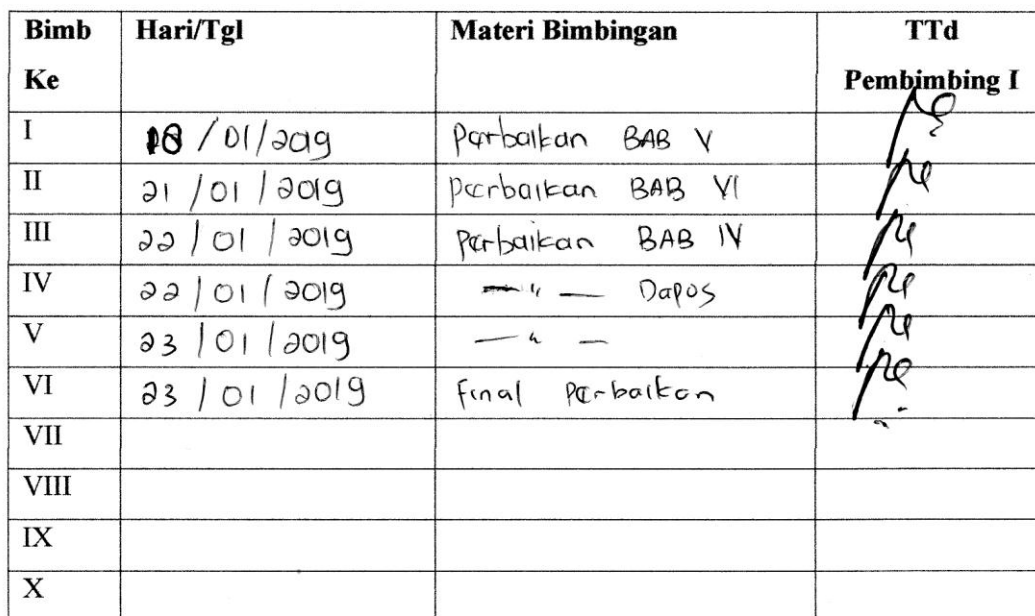 Bimb Ke Hari/Tgl Materi Bimbingan TTd Pembimbing I
I 18/01/2019 Perbaikan BAB V
II 21/01/2019 Perbaikan BAB VI
III 22/01/2019 Perbaikan BAB IV
IV 22/01/2019 — " — Dapos
V 23/01/2019 — " —
VI 23/01/2019 Final Perbaikan
VII
VIII
IX
X